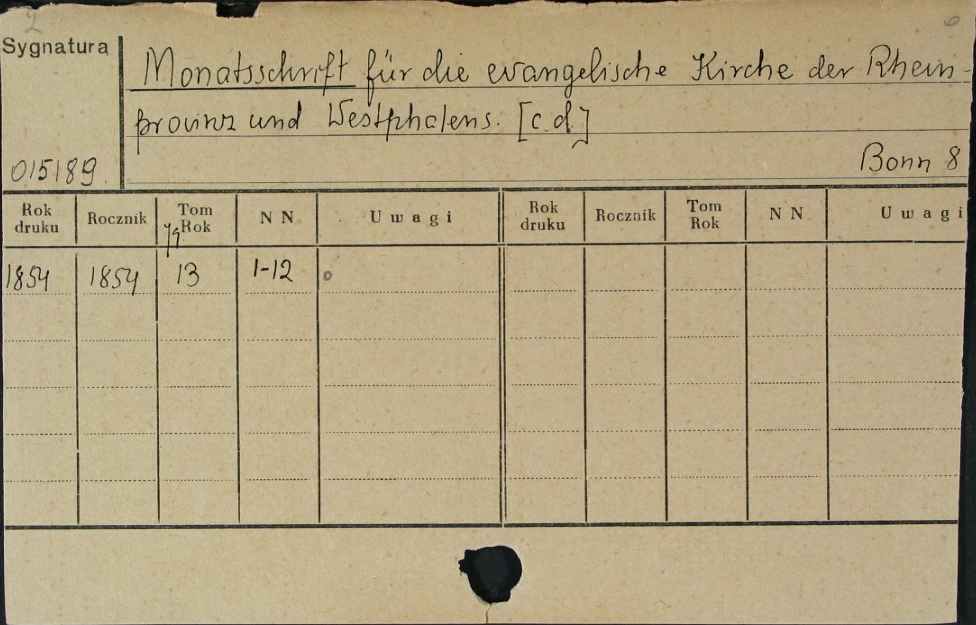 2
6
Sygnatura
Monatsschrift für die evangelische Kirche der Rhein-
provinz und Westphalens. [c.d]
015189.
Bonn 8
Rok druku Rocznik Tom Rok NN Uwagi Rok druku Rocznik Tom Rok NN Uwagi
Jg
1854 1854 13 1-12